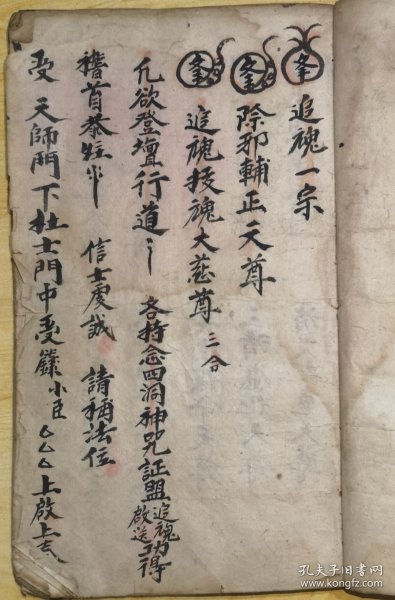 追魂一宗
除邪輔正天尊
追魂扱魂大慈尊 三合
凢欲登壇行道〻 各持念四洞神咒証盟追魂啟送功得
稽首恭 信士虔誠 請稱法位
受 天師門下杜士門中受籙小臣厶厶厶上啟上
孔夫子旧书网
www.kongfz.com